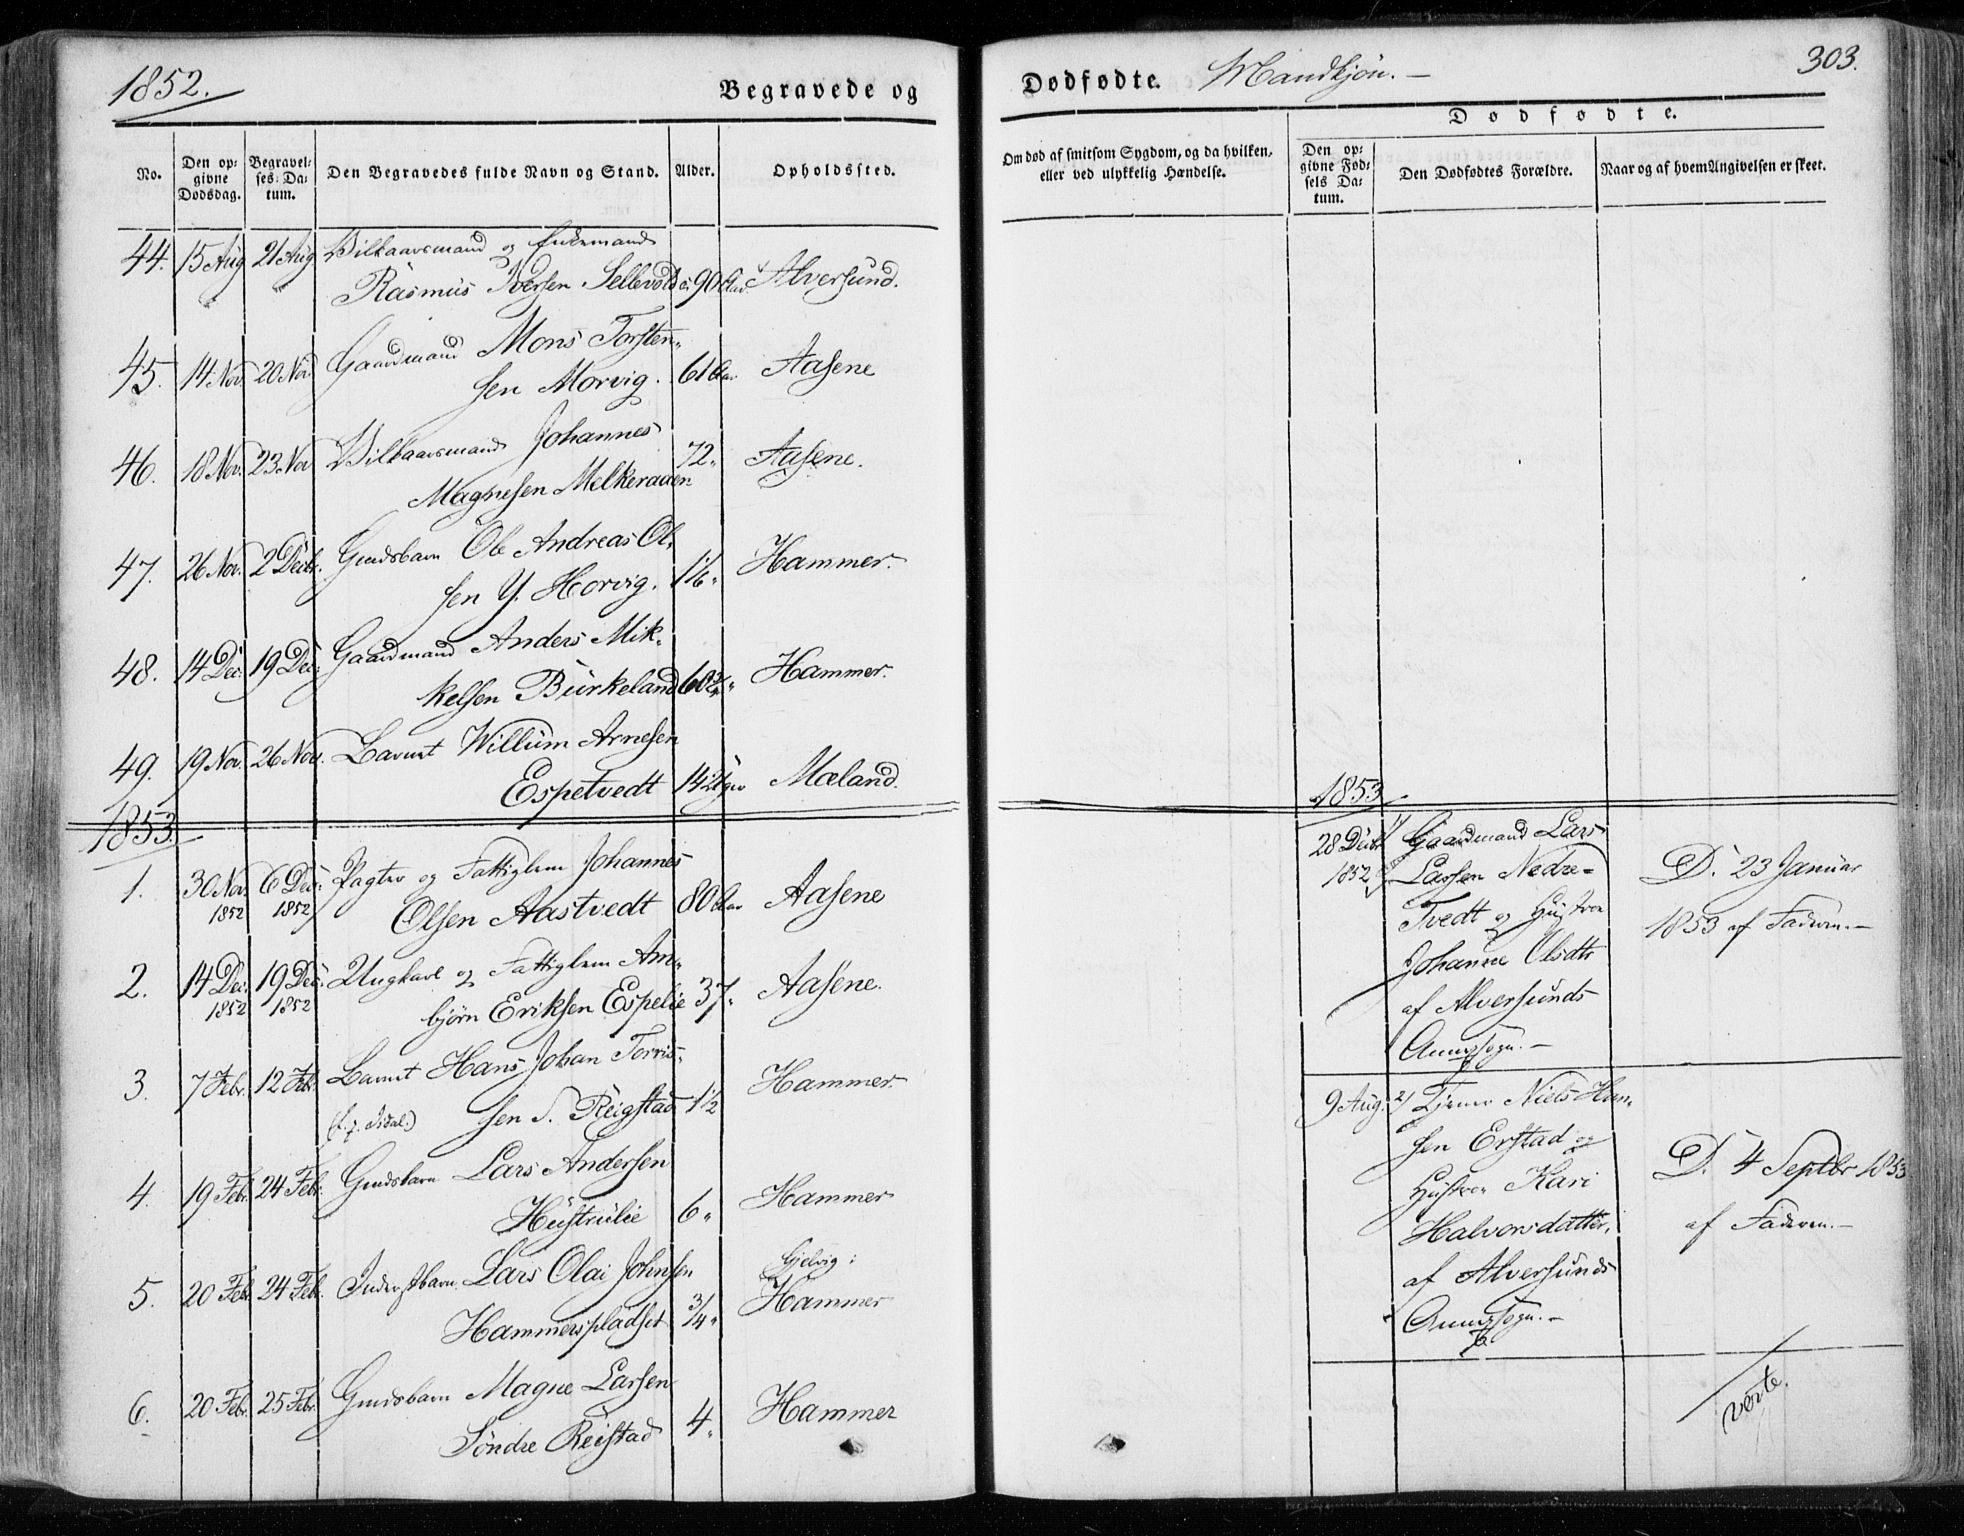 1852.
Begravede og
No.
Den op-
givne
Dødsdag.
Begravel-
ses-Da-
tum.
Den Begravedes fulde Navn og Stand.
Alder.
Opholdssted.
44. 15 Aug 21 Aug Vilkaarsmand og Enkemand
Rasmus Iversen Sellevold 90 Aar. Alversund.
45. 14 Nov. 20 Nov Gaardmand Mons Torsten-
sen Morvig. 61 Aar Aasene
46. 18 Nov. 23 Nov Vilkaarsmand Johannes 72„ Aasene.
Magnesen Melkeraaen
47. 26 Nov. 2 Decbr. Gmdsbarn Ole Andreas Ol-
sen Y. Horvig. 1 1/6„ Hammer.
48. 14 Dec. 19 Dec. Gaardmand Anders Mik-
kelsen Bürkeland Hammer.
49. 19 Nov. 26 Nov. Barnet Willum Arnesen
Espetvedt 14 Mæland.
1853.
1. 30 Nov. 6 Dec. Pagter og Fattiglem Johannes
1852 1852 Olsen Aastvedt 80 Aar Aasene
2. 14 Dec. 19 Dec. Ungkarl og Fattiglem Am-
1852 1852 bjørn Eriksen Espelie 37„ Aasene.
3. 7 Febr. 12 Feb. Barnet Hans Johan Torris-
sen S. Reigstad 1 1/2 Hammer
4. 19 Feb. 24 Feb. Gmdsbarn Lars Andersen
Hüstrulie 6„ Hammer
5. 20 Feb. 24 Feb. Inderstbarn Lars Olai Johnsen Gjelvig:
Hammerspladset 3/4„ Hammer
6. 20 Feb. 25 Feb. Gmdsbarn Magne Larsen
Søndre Reistad 4„ Hammer
Dødfødte. Mandkjøn. —
303.
Om død af smitsom Sygdom, og da hvilken,
eller ved ulykkelig Hændelse.
Dødfødte.
Den op-
givne Fød-
sels Da-
tum.
Den Dødfødtes Forældre.
Naar og af hvem Angivelsen er skeet.
1853
28 Decbr 1852
1/ Gaardmand Lars
Larsen Nedre-
Tvedt og Hustru
Johanne Olsdtr
af Alversunds
Annexsogn. —
D. 23 Januar
1853 af Faderen. —
9 Aug.
2/ Tjener Niels Han-
sen Erstad og
Hustru Kari
Halvorsdatter,
af Alversunds
Annexsogn. —
D. 4 Septbr 1853
af Faderen. —
verte.